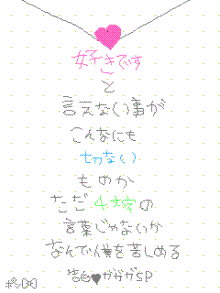 好きです
と
言えない事が
こんなにも
切ない
ものか
ただ4文字の
言葉じゃないか
なんで僕を苦しめる
告白♥カウカウSP